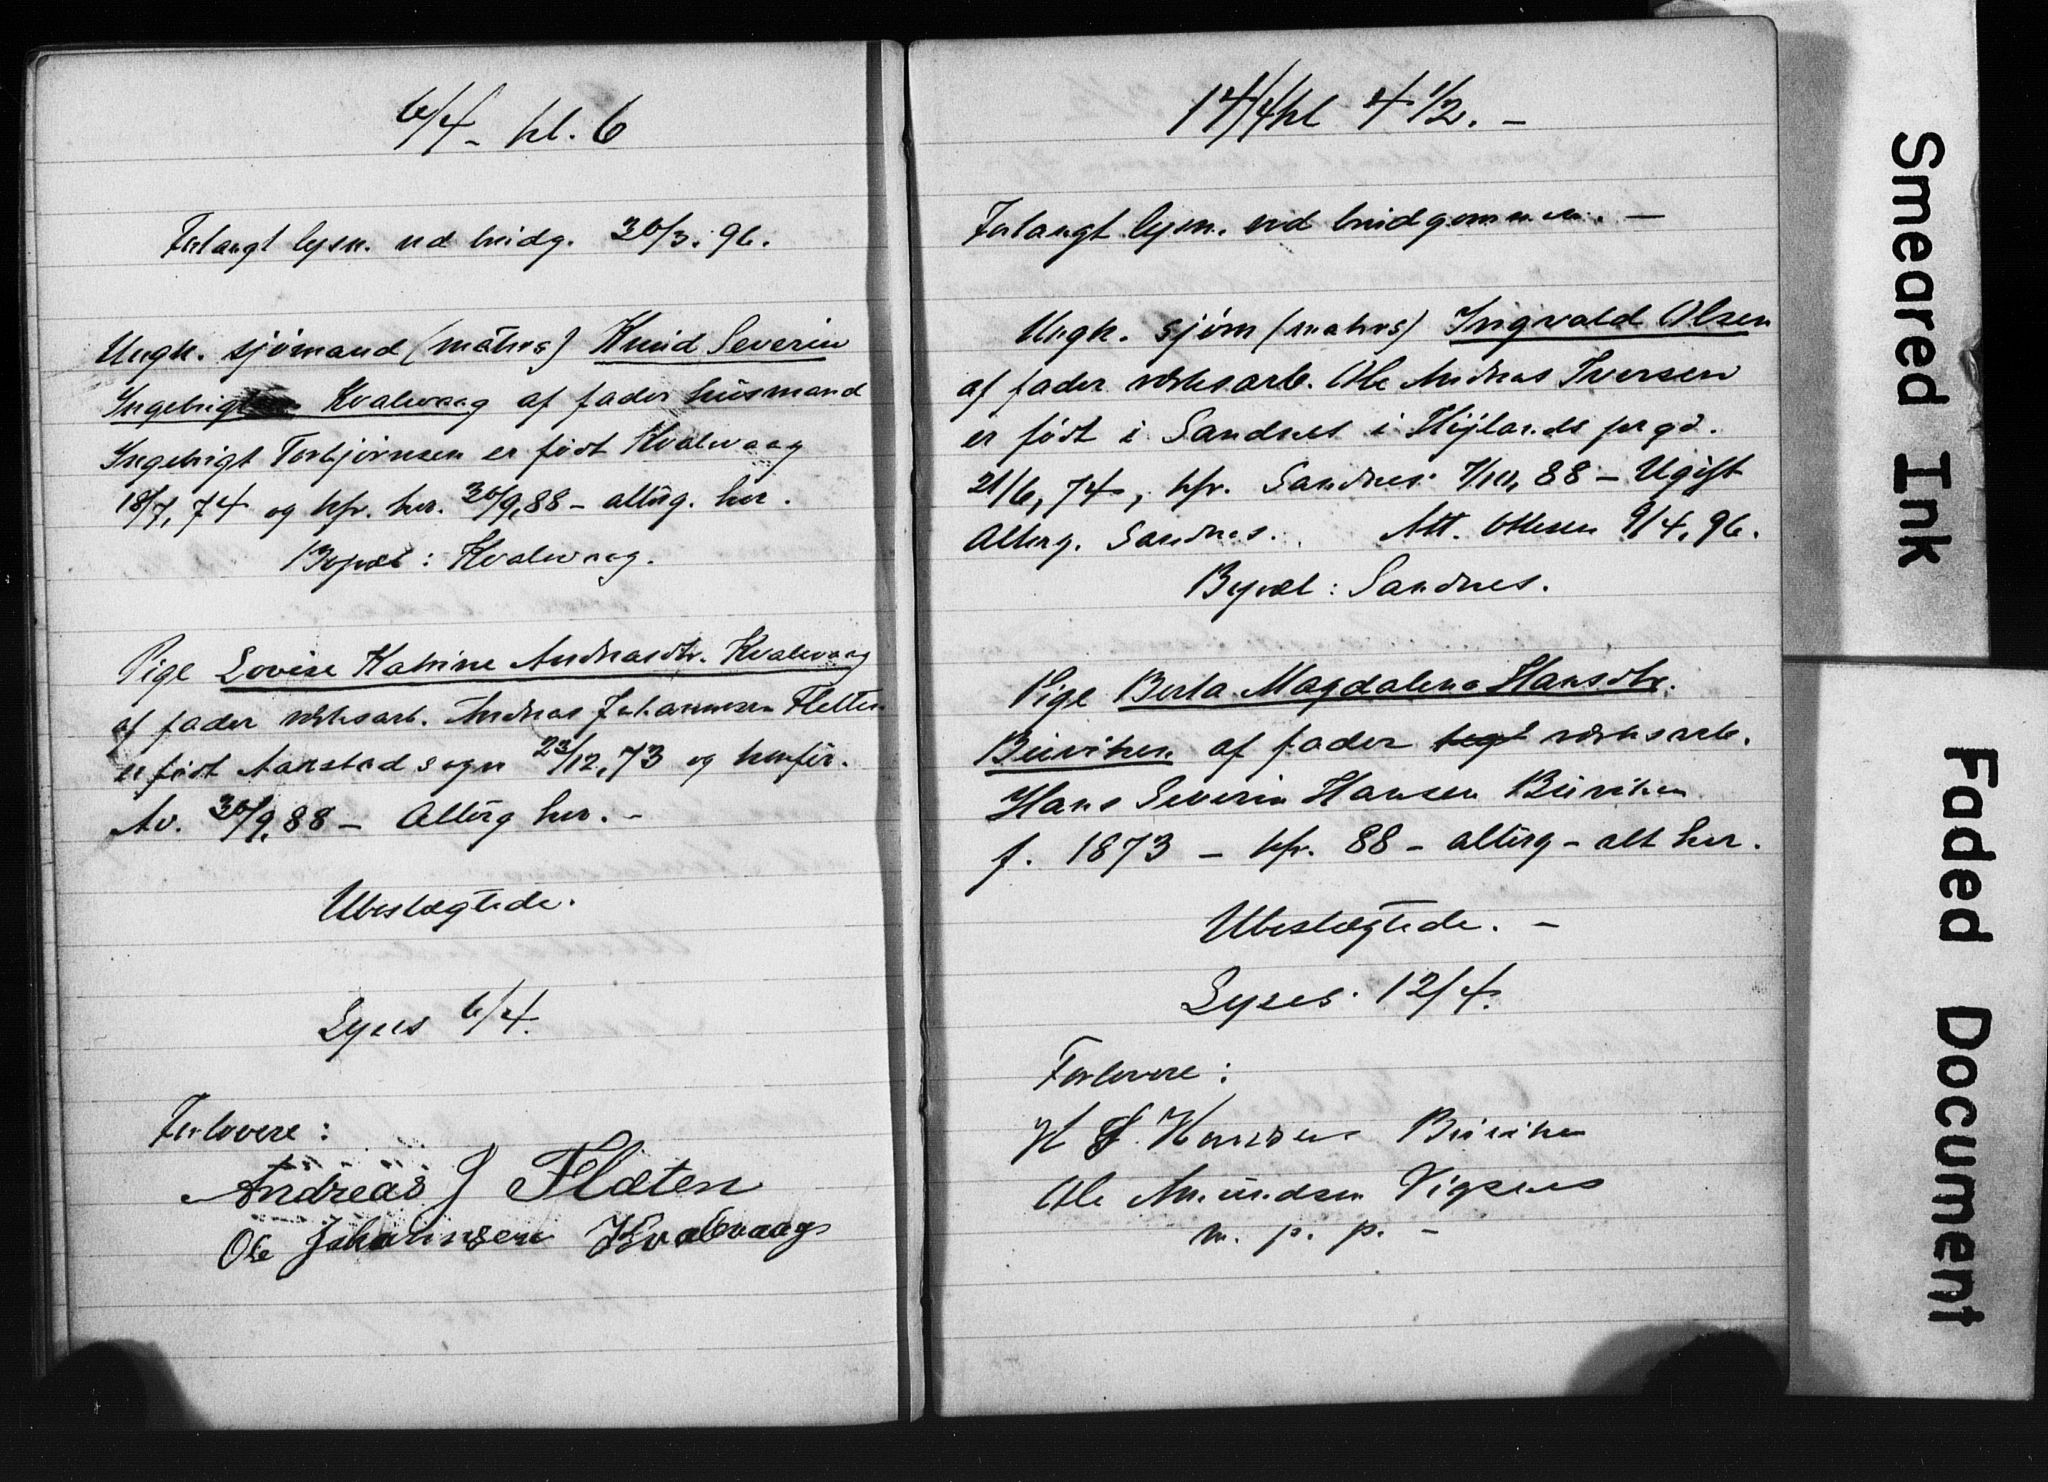 6/4 - kl. 6
Forlangt lysn. ved brudg. 30/3. 96.
Ungk. sjömand (matros) Knud Severin
Ingebrigtsen Kvalevaag af fader husmand
Ingebrigt Torbjörnsen er født Kvalevaag
18/7, 74 og kfr. her. 30/9, 88 - alterg. her.
Bopæl : Kvalevaag.
Pige Lovise Katrine Andreasdtr. Kvalevaag
af fader verksarb. Andreas Johannesen Fletten
er født Aarstad sogn 23/12, 73 og konfir.
Av. 30/9, 88 - Alterg her. -
Ubeslægtede.
Lyses 6/4.
Forlovere :
Andreas J Flæten
Ole Johannesen Kvalevaag
14/4 kl 4 1/2. -
Forlangt lysn. ved brudgommen. -
Ungk. sjøm (matros) Ingvald Olsen
af fader verksarb. Ole Andreas Iversen
er født i Sandnes i Höjlands prgd.
21/6, 74, kfr. Sandnes 7/10, 88 - Ugift
Alterg. Sandnes. Att. Ottesen 9/4, 96.
Bopæl : Sandnes.
Pige Berta Magdalena Hansdtr.
Buviken af fader verksarb.
Hans Severin Hansen Buviken
f. 1873 - kfr. 88 - alterg - alt her.
Ubeslægtede. -
Lyses. 12/4.
Forlovere :
H S. Hansen Buviken
Ole Amundsen Vigsnes
m. p. p. -
Smeared Ink
Faded Document